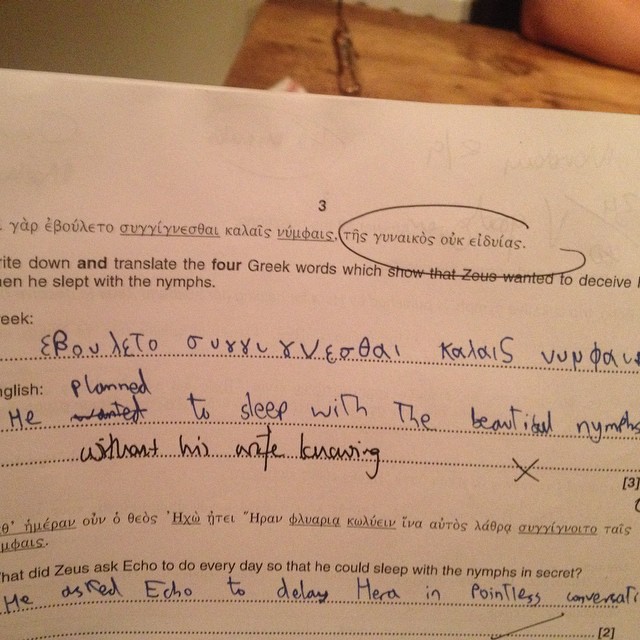 3
γὰρ ἐβούλετο συγγίγνεσθαι καλαῖς νύμφαις, τῆς γυναικὸς οὐκ εἰδυίας.
rite down and translate the four Greek words which show that Zeus wanted to deceive
en he slept with the nymphs.
eek:
εβουλετο συγγιγνεσθαι καλαις νυμφαις
nglish: planned
He wanted to sleep with the beautiful nymphs
without his wife knowing
[3]
θ' ἡμέραν οὖν ὁ θεὸς Ἠχὼ ᾔτει Ἥραν φλυαρίᾳ κωλύειν ἵνα αὐτὸς λάθρᾳ συγγίγνοιτο ταῖς
μφαις.
hat did Zeus ask Echo to do every day so that he could sleep with the nymphs in secret?
He asked Echo to delay Hera in pointless conversati
[2]